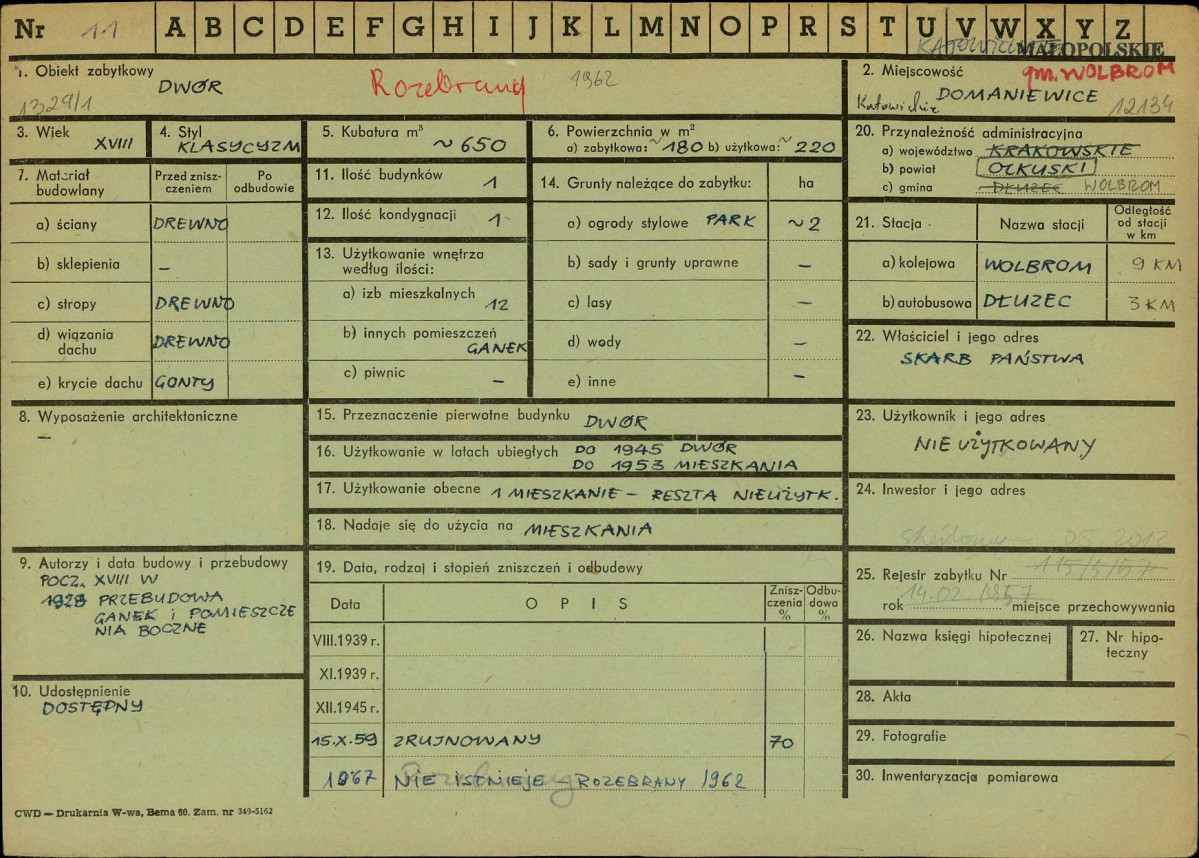 Nr 11 A B C D E F G H I J K L M N O P R S T U V W X Y Z
KATOWICKIE MAŁOPOLSKIE
1. Obiekt zabytkowy
DWÓR
Rozebrany 1962
1329/1
2. Miejscowość
gm. WOLBROM
Katowickie DOMANIEWICE 12134
3. Wiek
XVIII
4. Styl
KLASYCYZM
5. Kubatura m³
~ 650
6. Powierzchnia w m²
a) zabytkowa: ~ 180 b) użytkowa: ~ 220
7. Materiał budowlany
Przed znisz-
czeniem
Po
odbudowie
a) ściany DREWNO
b) sklepienia –
c) stropy DREWNO
d) wiązania
dachu DREWNO
e) krycie dachu GONTY
8. Wyposażenie architektoniczne
–
9. Autorzy i data budowy i przebudowy
POCZ. XVIII W
1928 PRZEBUDOWA
GANEK i POMIESZCZE
NIA BOCZNE
10. Udostępnienie
DOSTĘPNY
11. Ilość budynków 1
12. Ilość kondygnacji 1
13. Użytkowanie wnętrza
według ilości:
a) izb mieszkalnych 12
b) innych pomieszczeń
GANEK
c) piwnic –
14. Grunty należące do zabytku: ha
a) ogrody stylowe PARK ~ 2
b) sady i grunty uprawne –
c) lasy –
d) wody –
e) inne –
15. Przeznaczenie pierwotne budynku DWÓR
16. Użytkowanie w latach ubiegłych DO 1945 DWÓR
DO 1953 MIESZKANIA
17. Użytkowanie obecne 1 MIESZKANIE – RESZTA NIEUŻYTK.
18. Nadaje się do użycia na MIESZKANIA
19. Data, rodzaj i stopień zniszczeń i odbudowy
Data O P I S Znisz-
czenia
% Odbu-
dowa
%
VIII.1939 r.
XI.1939 r.
XII.1945 r.
15.X.59 ZRUJNOWANY 70
1967 NIE ISTNIEJE – ROZEBRANY 1962
20. Przynależność administracyjna
a) województwo KRAKOWSKIE
b) powiat OLKUSKI
c) gmina DŁUŻEC WOLBROM
21. Stacja Nazwa stacji Odległość
od stacji
w km
a) kolejowa WOLBROM 9 KM
b) autobusowa DŁUŻEC 3 KM
22. Właściciel i jego adres
SKARB PAŃSTWA
23. Użytkownik i jego adres
NIE UŻYTKOWANY
24. Inwestor i jego adres
25. Rejestr zabytku Nr
rok 14.02.1957 miejsce przechowywania
26. Nazwa księgi hipotecznej
27. Nr hipo-
teczny
28. Akta
29. Fotografie
30. Inwentaryzacja pomiarowa
CWD — Drukarnia W-wa, Bema 60. Zam. nr 349-5162